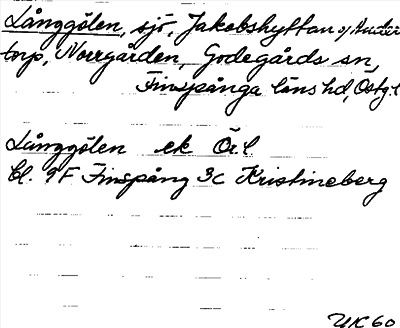 Långgölen, sjö, Jakobshyttan o/ Under
torp, Norrgården, Godegårds sn,
Finspånga läns hd, Östg. l
Långgölen ek Ör. l
bl. 9 F Finspång 3c Kristineberg
UK 60